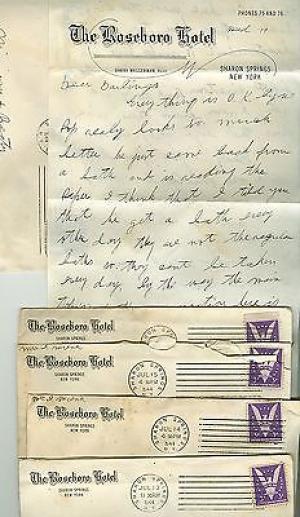 PHONES 75 AND 76
The Roseboro Hotel
SHARON SPRINGS
NEW YORK
Dear Darlings
Every thing is O.K. Eyes
Pop really looks so much
better he just came back from
a bath and is reading the
paper I think that I told you
that he get a bath every
other day they are not the regular
baths so they can't be taken
every day. By the way the main
is
The Roseboro Hotel
SHARON SPRINGS
NEW YORK
SHARON SPRINGS
The Roseboro Hotel
SHARON SPRINGS
NEW YORK
SHARON SPRINGS
JUL 15
4 PM
1944
N.Y.
The Roseboro Hotel
SHARON SPRINGS
NEW YORK
SHARON SPRINGS
JUL 14
4 PM
1944
The Roseboro Hotel
SHARON SPRINGS
NEW YORK
SHARON SPRINGS
JUL 13
PM
1944
N.Y.